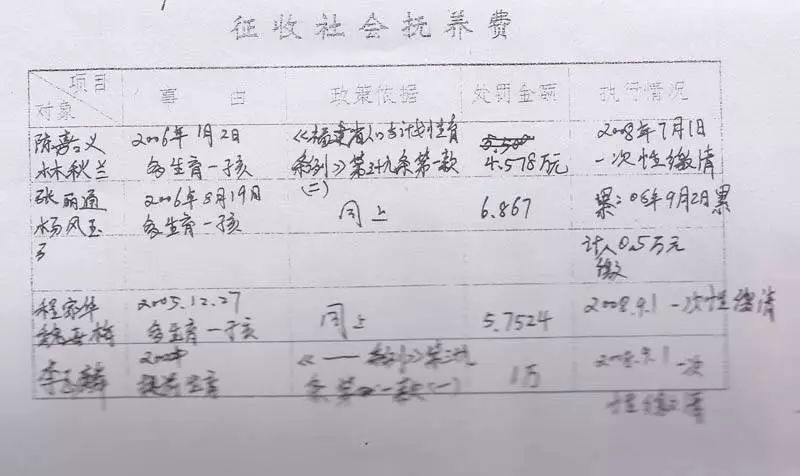 征收社会抚养费
项目
对象
事由
政策依据
处罚金额
执行情况
陈嘉义
林秋兰
2006年1月2日
多生育一孩
《福建省人口与计划生育
条例》第三十九条第一款
(二)
4.578万元
2008年7月1日
一次性缴清
张丽通
杨凤玉
2006年8月19日
多生育一孩
同上
6.867
累计人0.5万元
缴
2005.12.27
多生育一孩
同上
5.7524
2008.9.1 一次性缴清
提前生育
《一条例》第三九
条第一款(一)
1万
2008.9.1 一次
性缴清